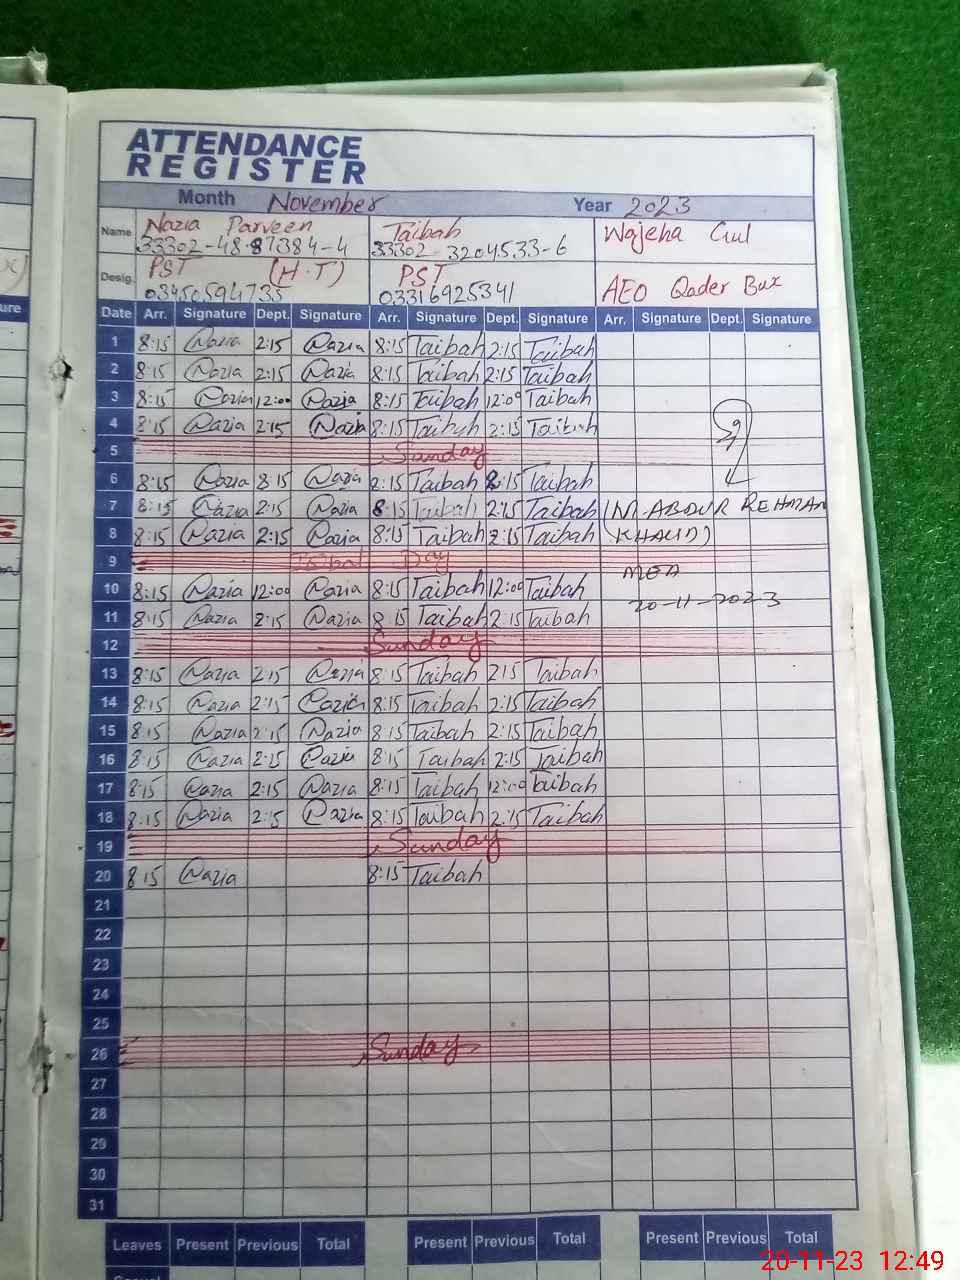 ATTENDANCE
REGISTER
Month November Year 2023
Name Nazia Parveen Taibah Wajeha Gul
33302-48-87384-4 33302-3204533-6
Desig. PST (H.T) PST AEO Qader Bux
03450594735 03316925341
Date Arr. Signature Dept. Signature Arr. Signature Dept. Signature Arr. Signature Dept. Signature
1 8:15 Nazia 2:15 Nazia 8:15 Taibah 2:15 Taibah
2 8:15 Nazia 2:15 Nazia 8:15 Taibah 2:15 Taibah
3 8:15 Nazia 12:00 Nazia 8:15 Taibah 12:00 Taibah
4 8:15 Nazia 2:15 Nazia 8:15 Taibah 2:15 Taibah
5 Sunday
6 8:15 Nazia 8:15 Nazia 2:15 Taibah 8:15 Taibah
7 8:15 Nazia 2:15 Nazia 8:15 Taibah 2:15 Taibah (M. ABDUR REHMAN
8 8:15 Nazia 2:15 Nazia 8:15 Taibah 2:15 Taibah KHALID)
9 Iqbal Day
MEA
10 8:15 Nazia 12:00 Nazia 8:15 Taibah 12:00 Taibah
20-11-2023
11 8:15 Nazia 2:15 Nazia 8:15 Taibah 2:15 Taibah
12 Sunday
13 8:15 Nazia 2:15 Nazia 8:15 Taibah 2:15 Taibah
14 8:15 Nazia 2:15 Nazia 8:15 Taibah 2:15 Taibah
15 8:15 Nazia 2:15 Nazia 8:15 Taibah 2:15 Taibah
16 8:15 Nazia 2:15 Nazia 8:15 Taibah 2:15 Taibah
17 8:15 Nazia 2:15 Nazia 8:15 Taibah 12:00 Taibah
18 8:15 Nazia 2:15 Nazia 8:15 Taibah 2:15 Taibah
19 Sunday
20 8:15 Nazia 8:15 Taibah
21
22
23
24
25
26 Sunday
27
28
29
30
31
Leaves Present Previous Total Present Previous Total Present Previous Total
20-11-23 12:49